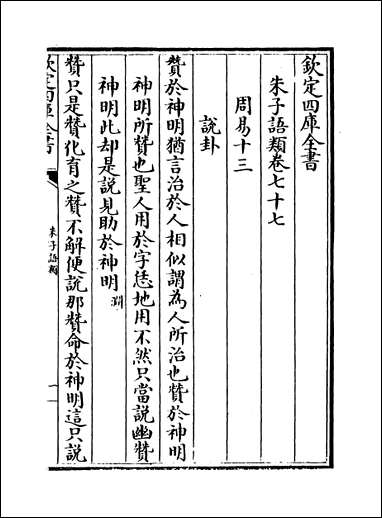 欽定四庫全書
朱子語類卷七十七
周易十三
說卦
贊於神明猶言治於人相似謂為人所治也贊於神明
神明所贊也聖人用於字恁地用不然只當說幽贊
神明此却是說見助於神明淵
贊只是贊化育之贊不解便說那贊命於神明這只說
欽定四庫全書
朱子語類
一